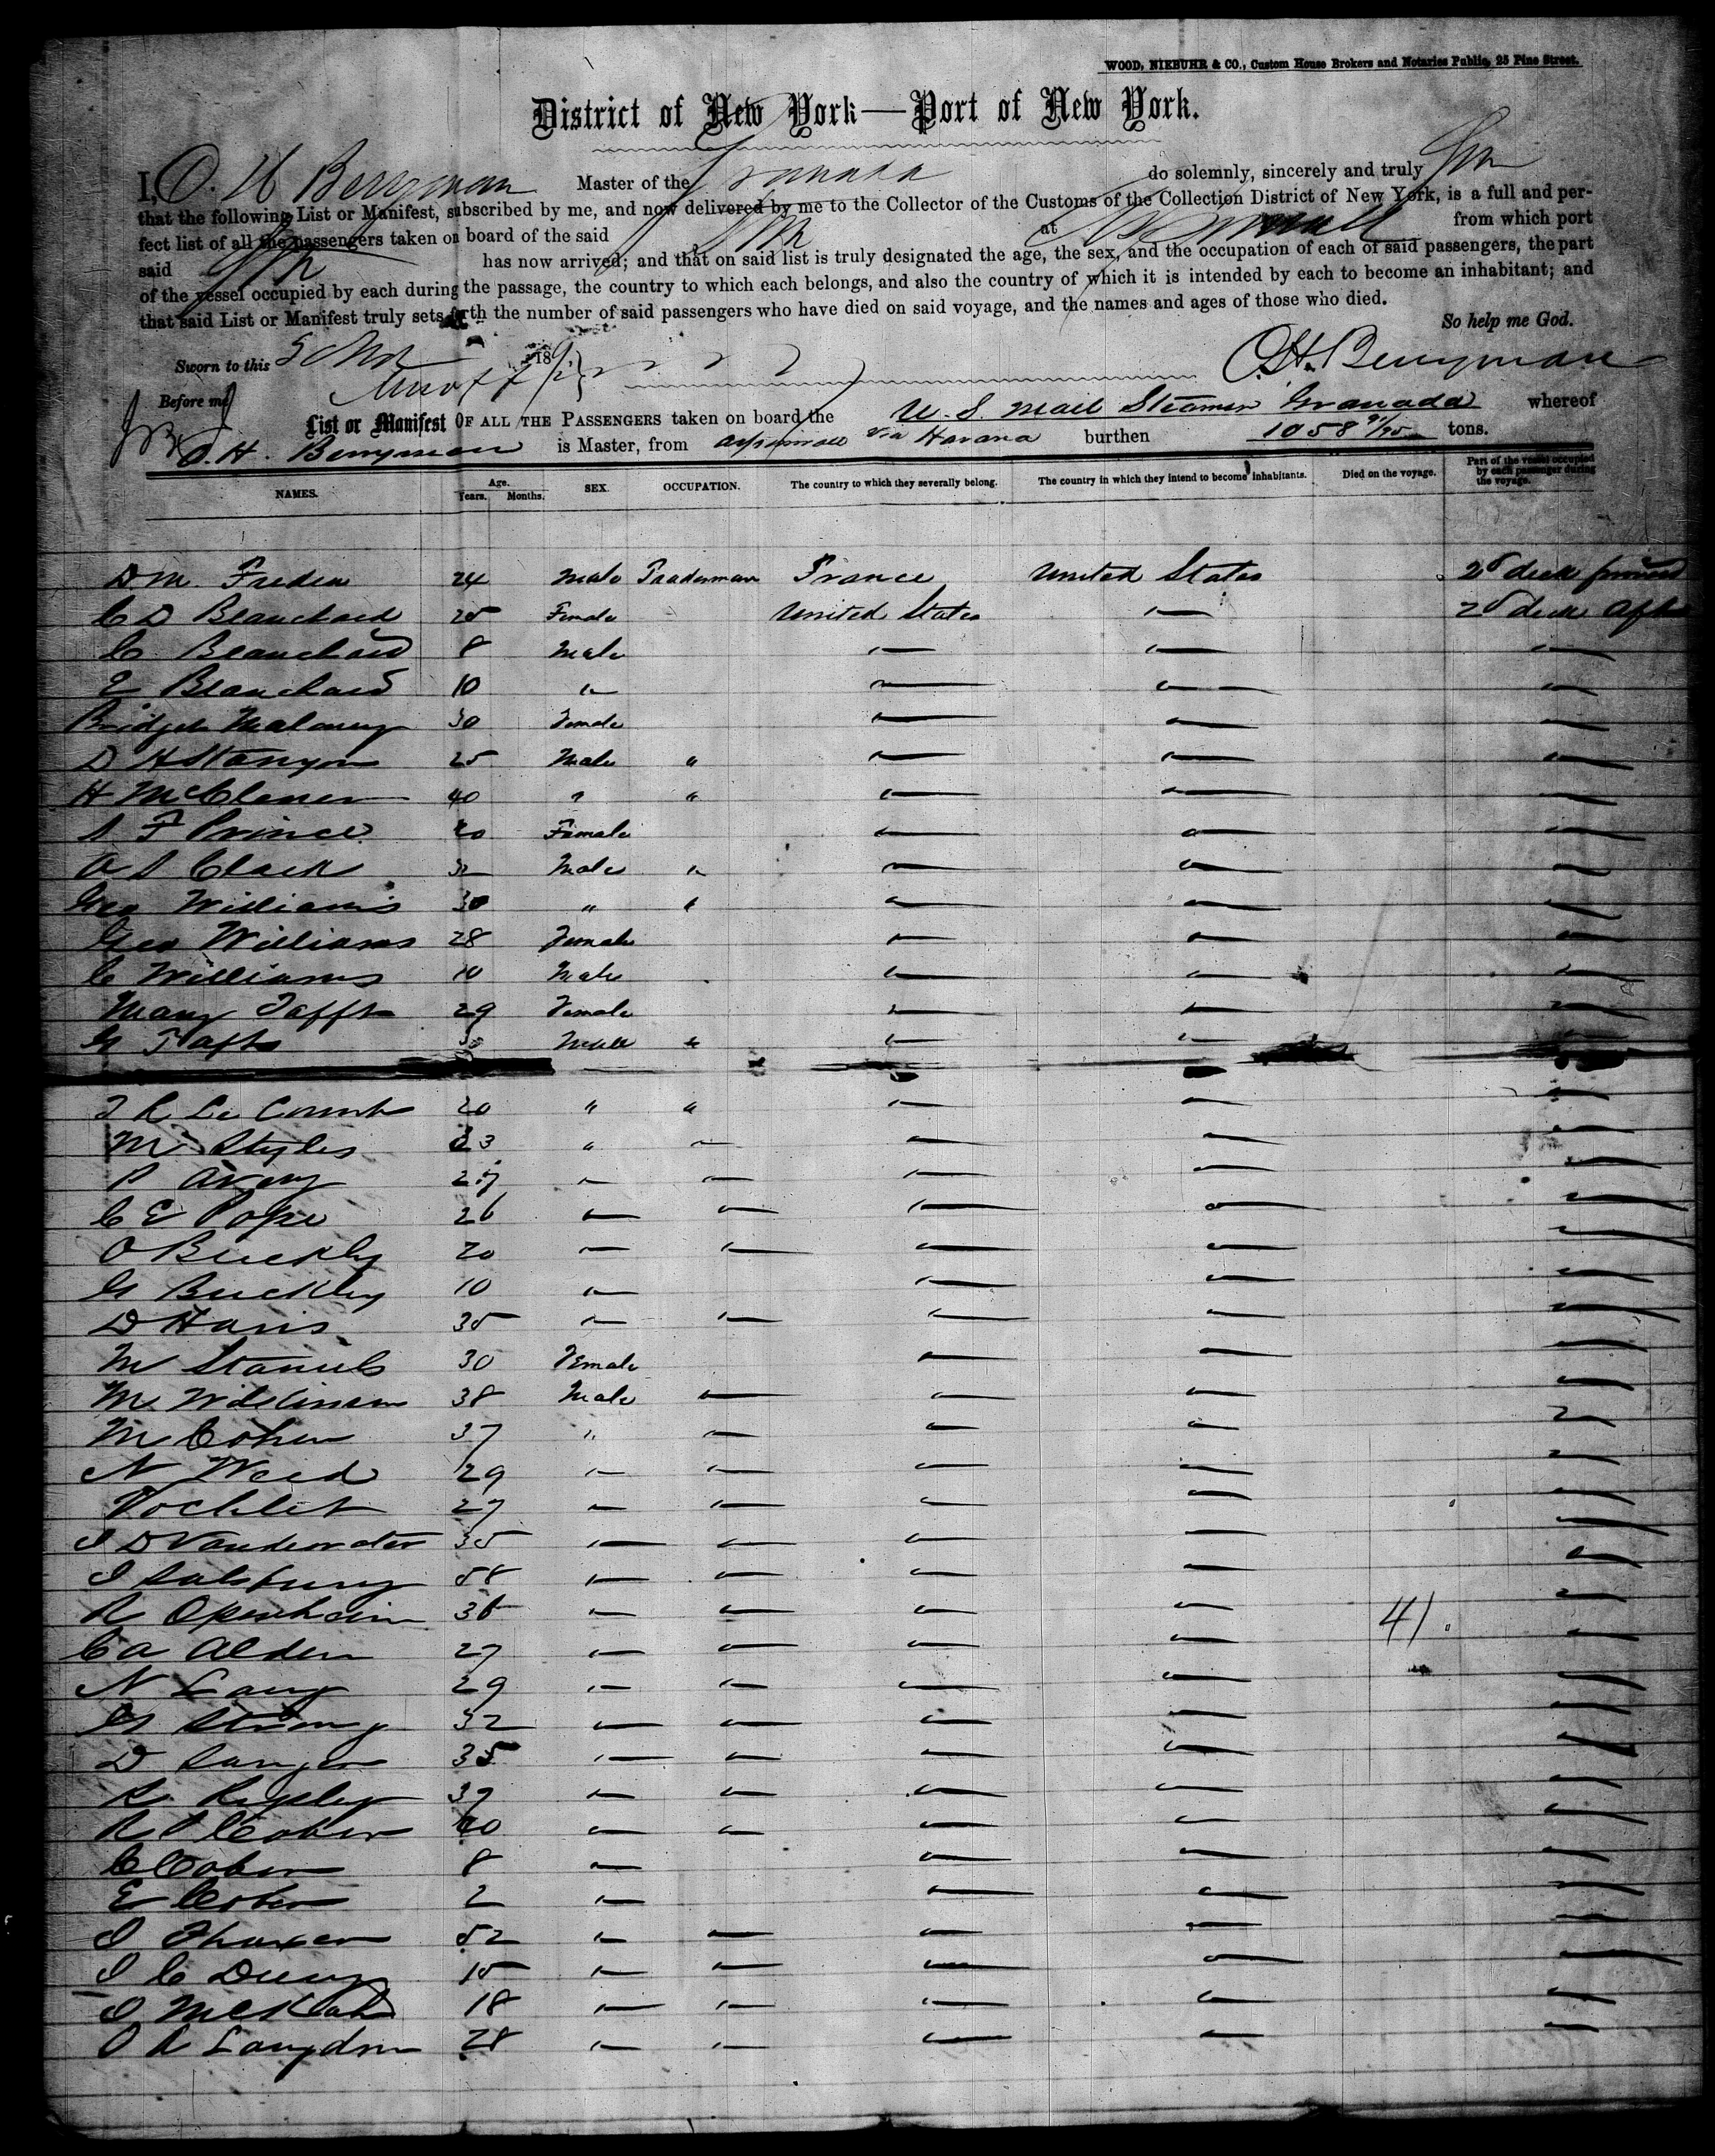 WOOD, NIEBUHR & CO., Custom House Brokers and Notaries Public, 25 Pine Street.
District of New York—Port of New York.
I, O. H Berryman Master of the Granada do solemnly, sincerely and truly
that the following List or Manifest, subscribed by me, and now delivered by me to the Collector of the Customs of the Collection District of New York, is a full and per-
fect list of all the passengers taken on board of the said at Aspinwall from which port
said has now arrived; and that on said list is truly designated the age, the sex, and the occupation of each of said passengers, the part
of the vessel occupied by each during the passage, the country to which each belongs, and also the country of which it is intended by each to become an inhabitant; and
that said List or Manifest truly sets forth the number of said passengers who have died on said voyage, and the names and ages of those who died.
So help me God.
Sworn to this 18 O.H. Berryman
Before me
List or Manifest OF ALL THE PASSENGERS taken on board the U. S. Mail Steamer Granada whereof
O. H. Berryman is Master, from Aspinwall Via Havana burthen 1058 91/95 tons.
NAMES. Age. Years. Months. SEX. OCCUPATION. The country to which they severally belong. The country in which they intend to become inhabitants. Died on the voyage. Part of the vessel occupied by each passenger during the voyage.
D M. Freden 24 Male Tradesman France United States 2d deck forward
C D Blanchard 25 Female United States 2d deck aft
C. Blanchard 8 Male
E Blanchard 10
Bridget Maloney 30 Female
D H Stanyon 25 Male "
H McClenen 40 " "
F Prince 20 Female
A S Clark Male "
Geo Williams 30 " "
Geo Williams 28 Female
C Williams 10 Male
Mary Tafft 29 Female
G Taft Male "
Le Count 20 " "
M Styles 23 "
P Avery 27
C E Pope 26
O Buckly 20
G Buckley 10
D Haris 35
M Staniels 30 Female
M Wilkinson 38 Male
M Cohen 37 "
N Weed 29
Vochlet 27
J D Vandewater 35
J Salsbury 58
R Openheim 36
C A Alden 27
N Lang 29
G Strong 32
D Sanger 35
R Rigsley 39
R P Cober 40
C Cober 8
E Cober 2
J Thaxer 52
J C Duny 15
J McKab 18
O R Langdon 28
41.